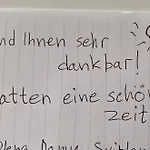 nd Ihnen sehr
dankbar!
atten eine schö
zeit